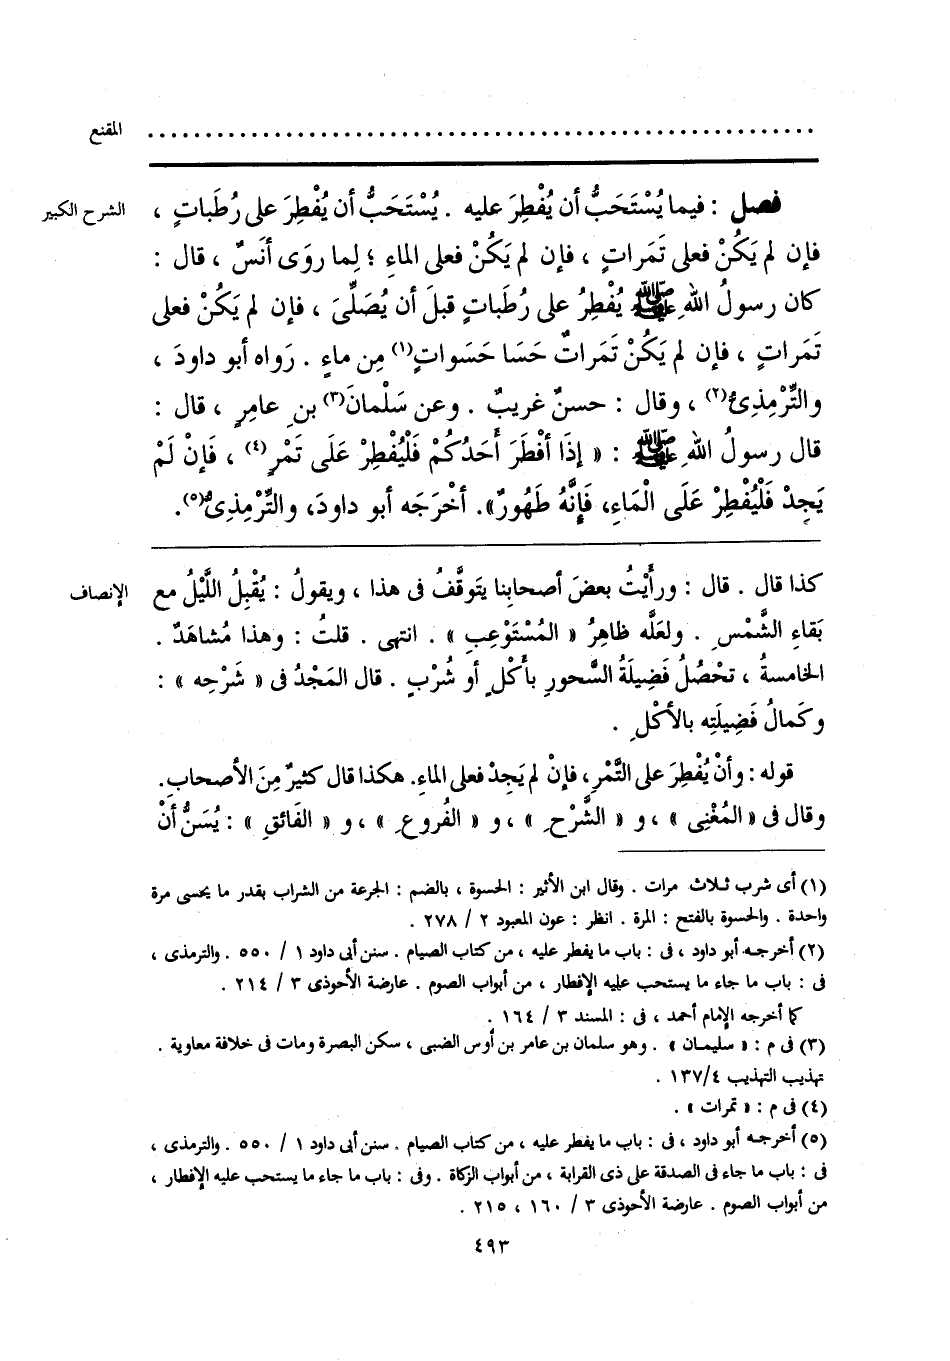 المقنع ............................................................
الشرح الكبير
فصل : فيما يُسْتَحَبُّ أن يُفْطِرَ عليه . يُسْتَحَبُّ أن يُفْطِرَ على رُطَباتٍ ،
فإن لم يَكُنْ فعلى تَمَراتٍ ، فإن لم يَكُنْ فعلى الماءِ ؛ لِما روَى أنَسٌ ، قال :
كان رسولُ اللهِ ﷺ يُفْطِرُ على رُطَباتٍ قبلَ أن يُصَلِّىَ ، فإن لم يَكُنْ فعلى
تَمَراتٍ ، فإن لم يَكُنْ تَمَراتٌ حَسَا حَسَواتٍ(١) مِن ماءٍ . رَواه أبو داودَ ،
والتِّرْمِذِىُّ(٢) ، وقال : حسنٌ غريبٌ . وعن سَلْمانَ(٣) بنِ عامِرٍ ، قال :
قال رسولُ اللهِ ﷺ : « إذَا أفْطَرَ أَحَدُكُمْ فَلْيُفْطِرْ عَلَى تَمْرٍ(٤) ، فَإنْ لَمْ
يَجِدْ فَلْيُفْطِرْ عَلَى الْمَاءِ، فَإنَّهُ طَهُورٌ». أخْرَجَه أبو داودَ، والتِّرْمِذِىُّ(٥).
الإنصاف
كذا قال . قال : ورأَيْتُ بعضَ أصحابِنا يتَوقَّفُ فى هذا ، ويقولُ : يُقْبِلُ اللَّيْلُ مع
بَقاءِ الشَّمْسِ . ولعَلَّه ظاهِرُ « المُسْتَوْعِبِ » . انتهى . قلتُ : وهذا مُشاهَدٌ .
الخامسةُ ، تحْصُلُ فَضِيلَةُ السَّحورِ بأَكْلٍ أو شُرْبٍ . قال المَجْدُ فى « شَرْحِه » :
وكَمالُ فَضِيلَتِه بالأكْلِ .
قوله : وأنْ يُفْطِرَ على التَّمْرِ، فإنْ لم يَجِدْ فعلى الماءِ. هكذا قال كثيرٌ مِنَ الأصحابِ.
وقال فى « المُغْنِى » ، و « الشَّرْحِ » ، و « الفُروعِ » ، و « الفَائقِ » : يُسَنُّ أنْ
(١) أى شرب ثلاث مرات . وقال ابن الأثير : الحسوة ، بالضم : الجرعة من الشراب بقدر ما يحسى مرة
واحدة . والحسوة بالفتح : المرة . انظر : عون المعبود ٢ / ٢٧٨ .
(٢) أخرجه أبو داود ، فى : باب ما يفطر عليه ، من كتاب الصيام . سنن أبى داود ١ / ٥٥٠ . والترمذى ،
فى : باب ما جاء ما يستحب عليه الإفطار ، من أبواب الصوم . عارضة الأحوذى ٣ / ٢١٤ .
كما أخرجه الإمام أحمد ، فى : المسند ٣ / ١٦٤ .
(٣) فى م : « سليمان » . وهو سلمان بن عامر بن أوس الضبى ، سكن البصرة ومات فى خلافة معاوية .
تهذيب التهذيب ١٣٧/٤ .
(٤) فى م : « تمرات » .
(٥) أخرجه أبو داود ، فى : باب ما يفطر عليه ، من كتاب الصيام . سنن أبى داود ١ / ٥٥٠ . والترمذى ،
فى : باب ما جاء فى الصدقة على ذى القرابة ، من أبواب الزكاة . وفى : باب ما جاء ما يستحب عليه الإفطار ،
من أبواب الصوم . عارضة الأحوذى ٣ / ١٦٠ ، ٢١٥ .
٤٩٣